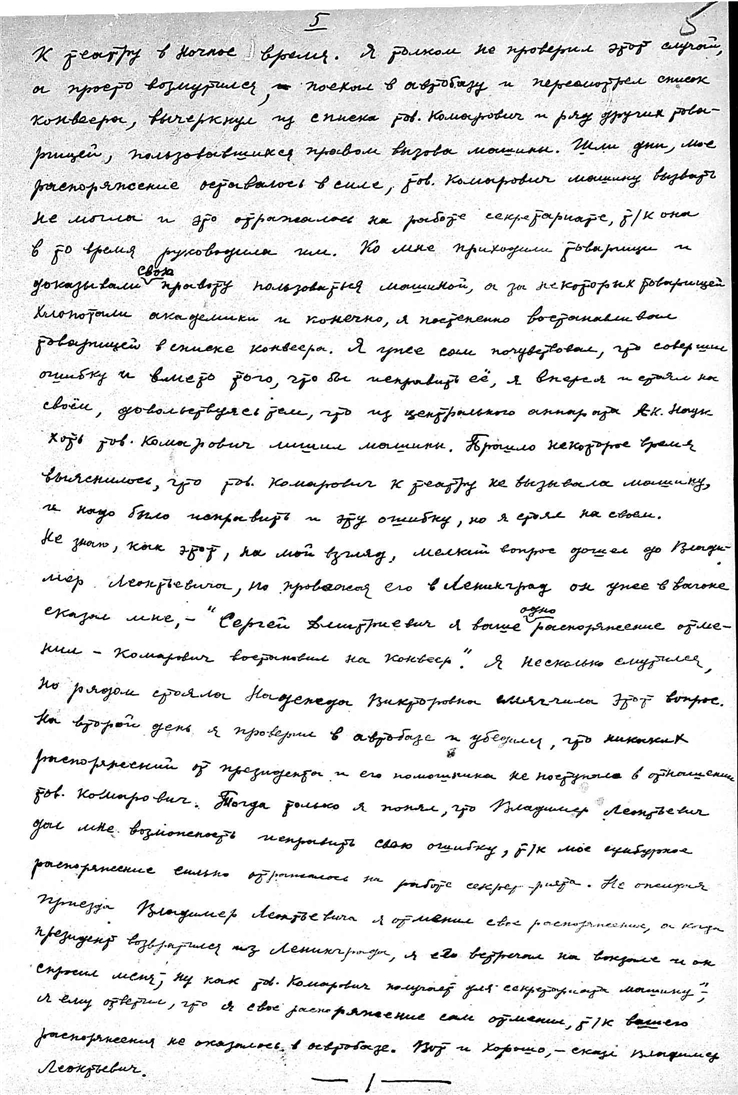 5
5
К театру в ночное время. Я толком не проверил этот случай,
а просто возмутился, поехал в автобазу и пересмотрел список
конвеера, вычеркнул из списка тов. Комарович и ряд других това-
рищей, пользовавшихся правом вызова машины. Шли дни, мое
распоряжение оставалось в силе, тов. Комарович машину вызвать
не могла и это отражалось на работе секретариата, т/к она
в то время руководила им. Ко мне приходили товарищи и
доказывали свою правоту пользоватья машиной, а за некоторых товарищей
хлопотали академики и конечно, я постепенно востанавливал
товарищей в списке конвеера. Я уже сам почувствовал, что совершил
ошибку и вместо того, что бы исправить её, я уперся и стоял на
своём, довольствуясь тем, что из центрального аппарата Ак. Наук
хоть тов. Комарович лишил машины. Прошло некоторое время
выяснилось, что тов. Комарович к театру не вызывала машину,
и надо было исправить и эту ошибку, но я стоял на своем.
Не знаю, как этот, на мой взгляд, мелкий вопрос дошел до Влади-
мер Леонтьевича, но провожая его в Ленинград он уже в вагоне
сказал мне, – "Сергей Дмитриевич я ваше одно распоряжение отме-
нил – Комарович востановил на конвеер". Я несколько смутился,
но рядом стояла Надежда Викторовна смягчила этот вопрос.
На второй день я проверил в автобазе и убедился, что никаких
распоряжений от президента и его помошника не поступало в отношении
тов. Комарович. Тогда только я понял, что Владимер Леонтьевич
дал мне возможность исправить свою ошибку, т/к мое сумбурное
распоряжение сильно отражалось на работе секретариата. Не ожидая
приезда Владимер Леонтьевича я отменил свое распоряжение, а когда
президент возвратился из Ленинграда, я его встречал на вокзале и он
спросил меня, ну как тов. Комарович получает для секретариата машину",
я ему ответил, что я свое распоряжение сам отменил, т/к вашего
распоряжения не оказалось в автобазе. Вот и хорошо, – сказал Владимер
Леонтьевич.